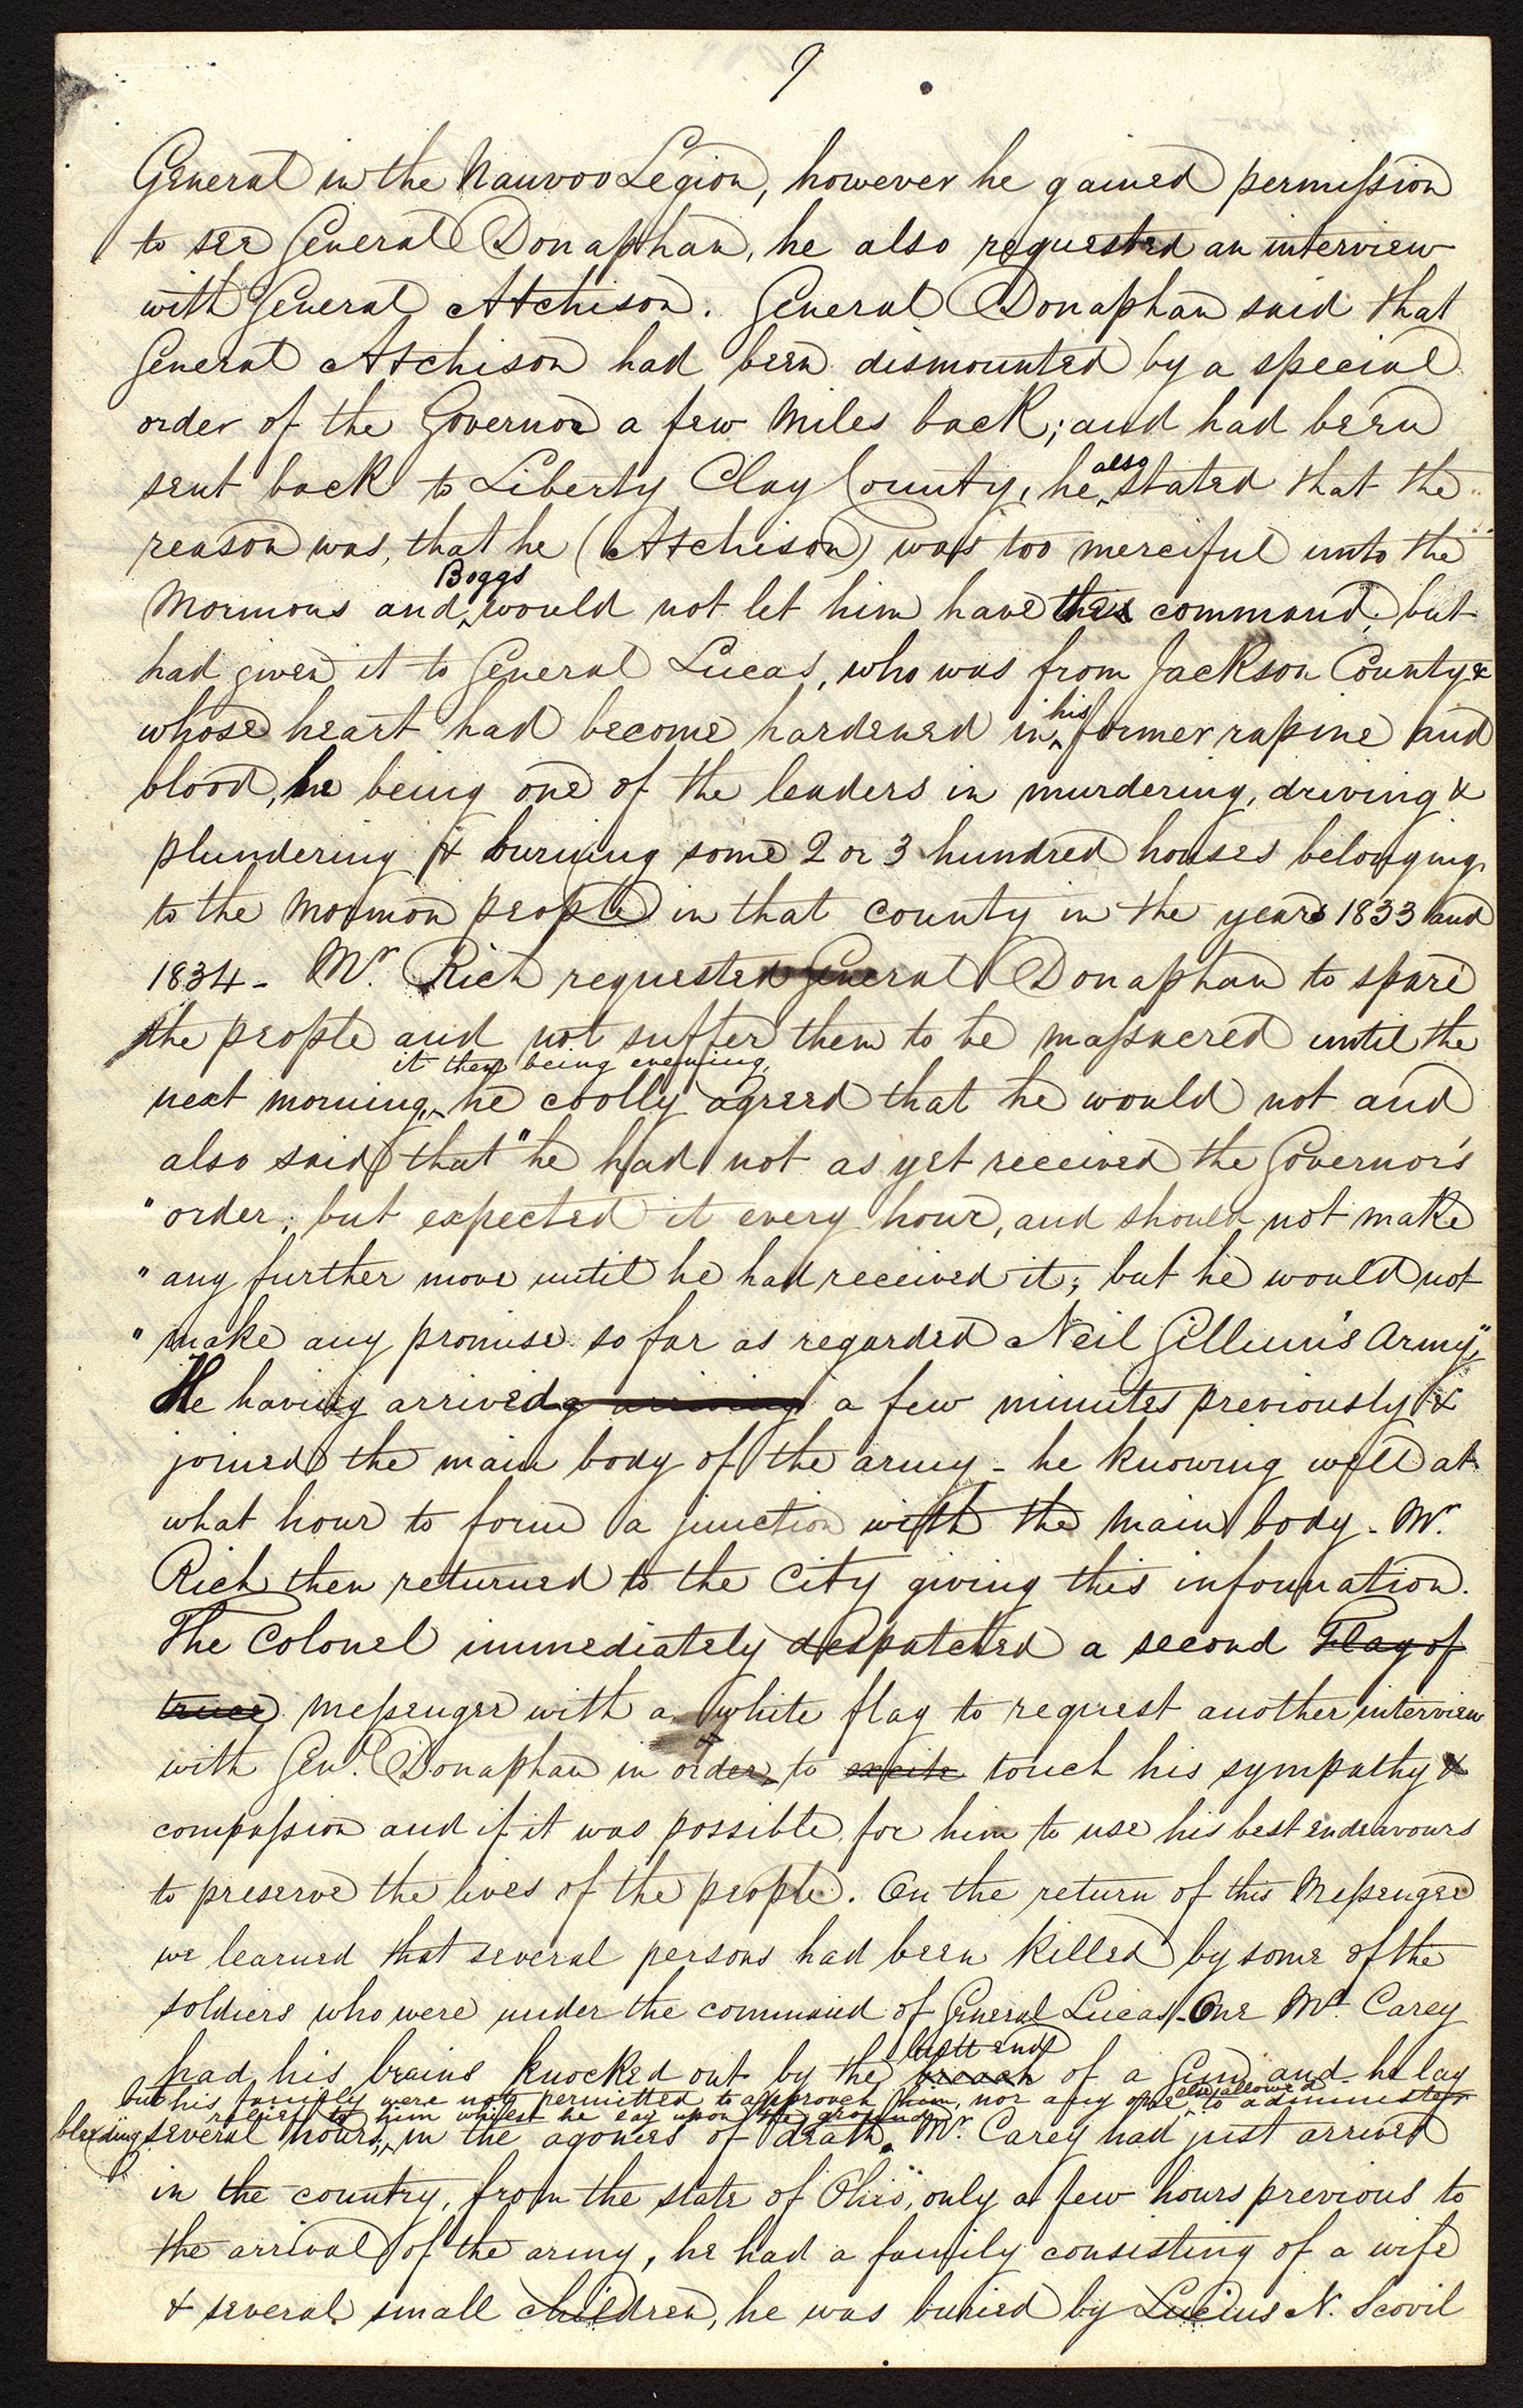 9
General in the Nauvoo Legion, however he gained permission
to see General Donaphan, he also requested an interview
with General Atchison. General Donaphan said that
General Atchison had been dismounted by a special
order of the Governor a few miles back; and had been
sent back to Liberty Clay County, he also stated that the
reason was, that he (Atchison) was too merciful unto the
Mormons and Boggs would not let him have the command, but
had given it to General Lucas, who was from Jackson County &
whose heart had become hardened in his former rapine and
blood, he being one of the leaders in murdering, driving &
plundering & burning some 2 or 3 hundred houses belonging
to the Mormon people in that county in the years 1833 and
1834 - Mr. Rich requested General Donaphan to spare
the people and not suffer them to be massacred until the
next morning, it then being evening, he coolly agreed that he would not and
also said that "he had not as yet received the Governor's
"order; but expected it every hour, and should not make
"any further move until he had received it; but he would not
"make any promise so far as regarded Neil Gillum's Army,"
He having arrived a few minutes previously &
joined the main body of the army - he knowing well at
what hour to form a junction with the main body - Mr.
Rich then returned to the City giving this information.
The Colonel immediately despatched a second Flag of
truce messenger with a white flag to request another interview
with Genl. Donaphan in order to excite touch his sympathy &
compassion and if it was possible for him to use his best endeavours
to preserve the lives of the people. On the return of this Messenger
we learned that several persons had been killed by some of the
soldiers who were under the command of General Lucas - One Mr. Carey
had his brains knocked out by the breach butt end of a Gun and he lay
bleeding several hours, but his family were not permitted to approach him, nor any one else allowed to administer
relief to him whilst he lay upon the ground in the agonies of death. Mr. Carey had just arrived
in the country, from the state of Ohio, only a few hours previous to
the arrival of the army, he had a family consisting of a wife
& several small children, he was buried by Lucius N. Scovil